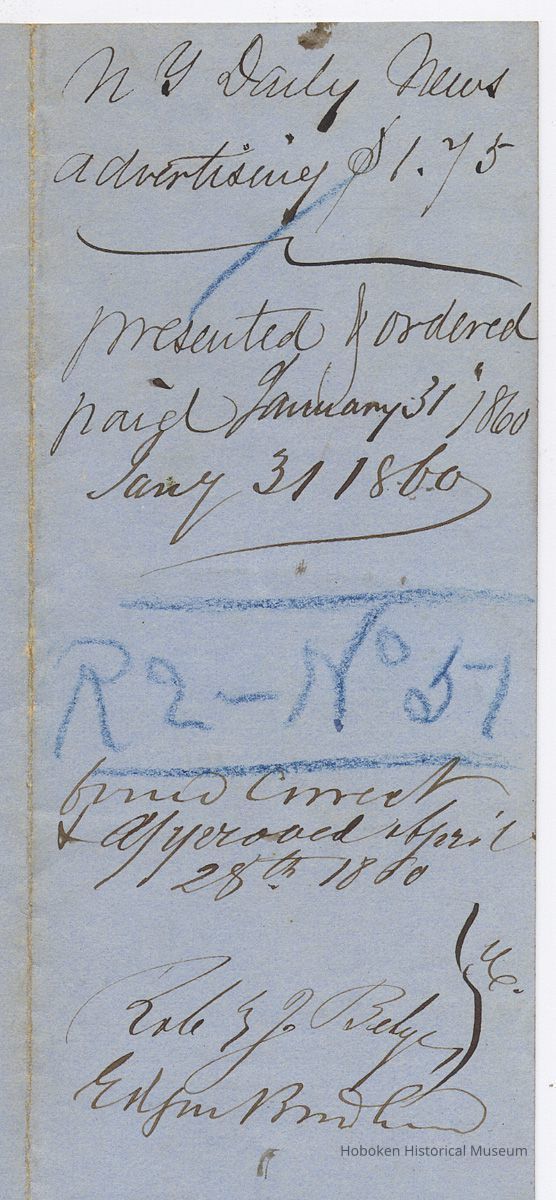 N Y Daily News
advertising $1.75
presented & ordered
paid January 31" 1860
Jany 31 1860
R2 - No 51
found Correct
& Approved April
28th 1860
Edgar
Hoboken Historical Museum